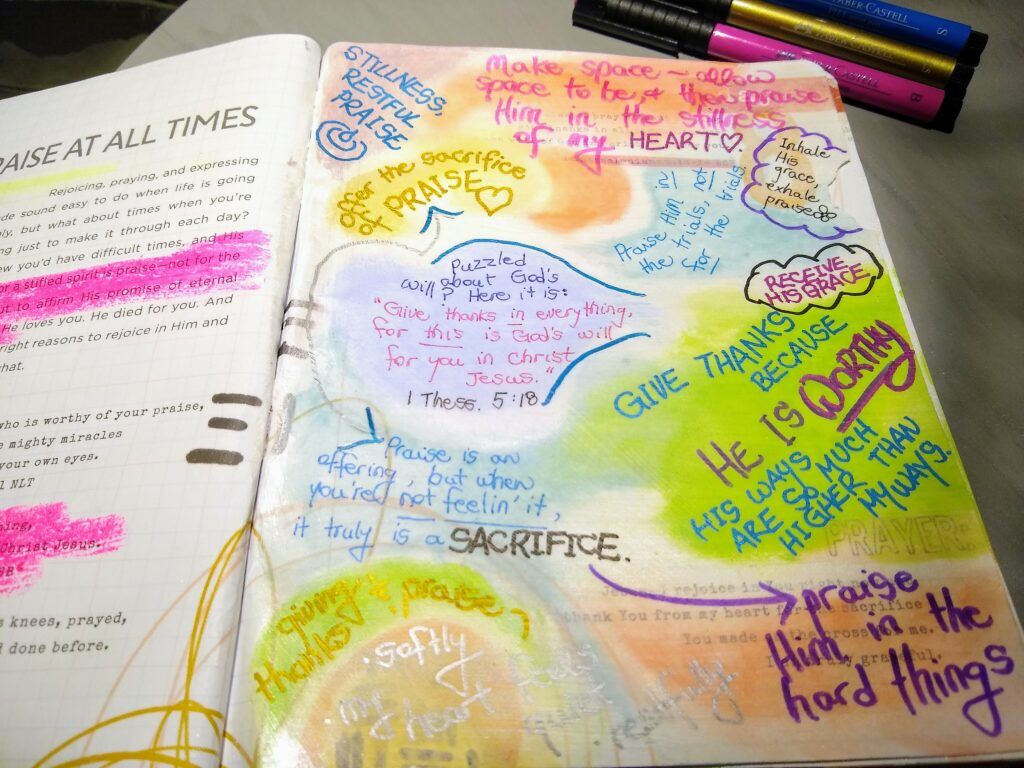 RAISE AT ALL TIMES
Rejoicing, praying, and expressing
sound easy to do when life is going
but what about times when you're
just to make it through each day?
you'd have difficult times, and His
for a stifled spirit is praise—not for the
to affirm His promise of eternal
He loves you. He died for you. And
right reasons to rejoice in Him and
who is worthy of your praise,
mighty miracles
your own eyes.
NLT
Christ Jesus.
knees, prayed,
done before.
STILLNESS,
RESTFUL
PRAISE
Make space ~ allow
space to be & then praise
Him in the stillness
of my HEART♡.
offer the sacrifice
of PRAISE♡
Inhale
His
grace,
exhale
praise
Praise Him in
the trials, not
for the trials.
RECEIVE
HIS GRACE
Puzzled
about God's
will? Here it is:
"Give thanks in everything,
for this is God's will
for you in Christ
Jesus."
1 Thess. 5:18
GIVE THANKS
BECAUSE
HE IS WORTHY
HIS WAYS
ARE SO MUCH
HIGHER THAN
MY WAYS.
Praise is an
offering, but when
you're not feelin' it,
it truly is a SACRIFICE.
PRAYER:
rejoice in You right
thank You from my heart for sacrifice
You made the cross me.
praise
Him in the
hard things
giving & praise
thanks
softly
my heart feels
quiet